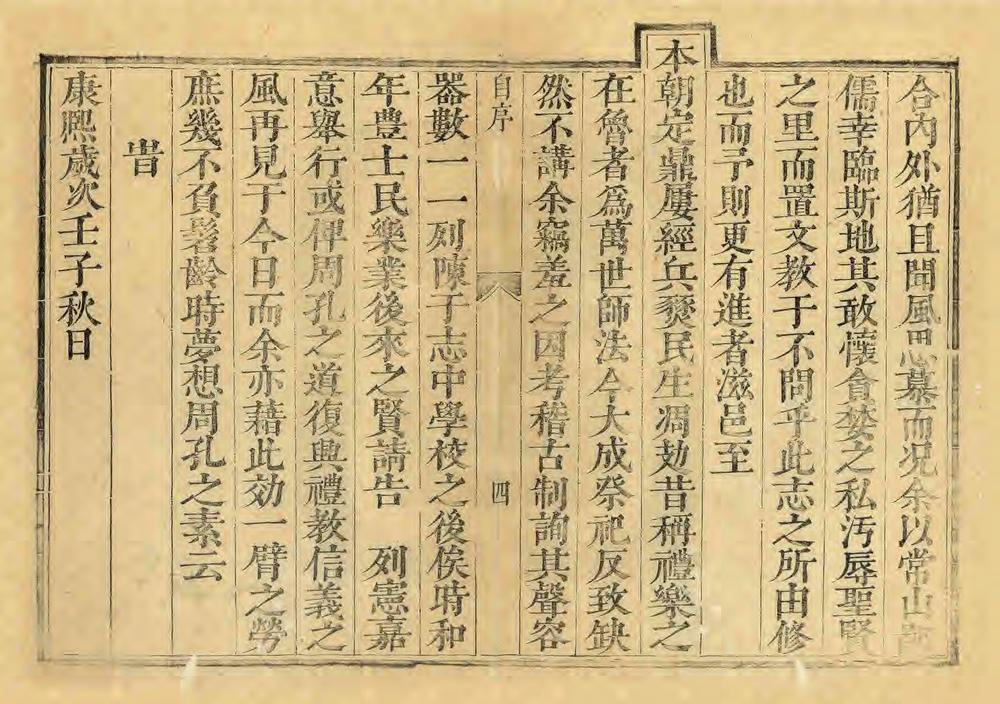 合内外猶且聞風思慕而况余以常山
儒幸臨斯地其敢懷貪婪之私汚辱聖賢
之里而置文教于不問乎此志之所由修
也而予則更有進者滋邑至
本朝定鼎屢經兵燹民生凋攰昔稱禮樂之
在魯者爲萬世師法今大成祭祀反致缺
然不講余竊羞之因考稽古制詢其聲容
自序 四
器數一一列陳于志中學校之後俟時和
年豊士民樂業後來之賢請告 列憲嘉
意舉行或俾周孔之道復興禮教信義之
風再見于今日而余亦藉此効一臂之勞
庶幾不負髫齡時夢想周孔之素云
旹
康熙歲次壬子秋日